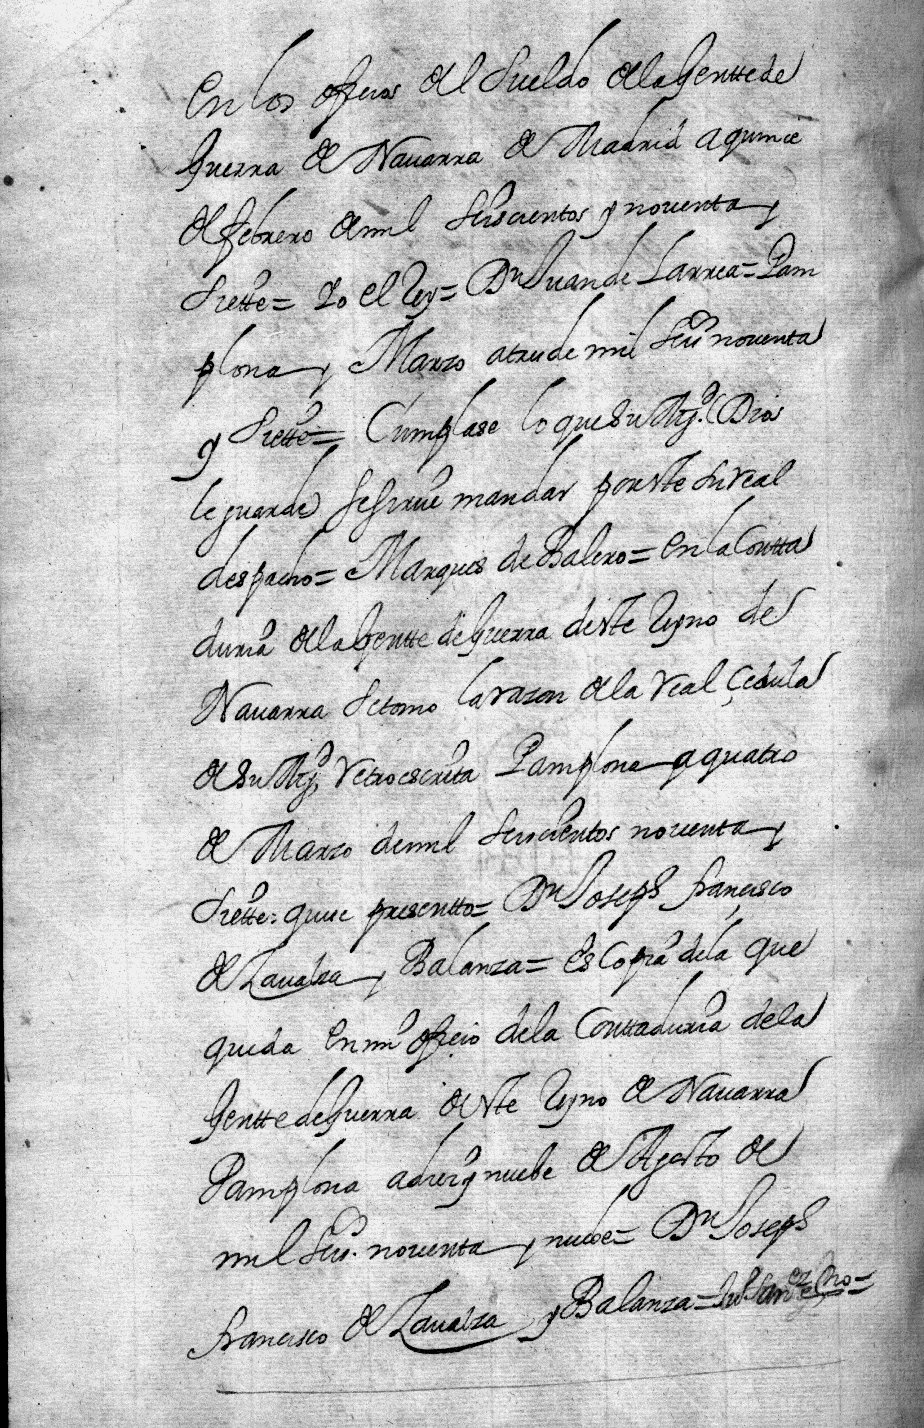 En los officios del Sueldo de la Gentte de
Guerra de Nauarra de Madrid a quince
de febrero de mil Seiscientos y nouenta y
Siette = Yo el Rey = Dn Juan de Larrea = Pam
plona y Marzo a tres de mil Seis.os nouenta
y Siette = Cumplase lo que Su Mgd. (Dios
le guarde) se sirue mandar por este Su real
despacho = Marques de Balero = En la Contta
duria de la Gentte de Guerra deste Reyno de
Nauarra se tomo la razon de la real çedula
de Su Mgd. retroescrita Pamplona a quatro
de Marzo de mil Seiscientos nouenta y
Siette: que presentto = Dn Joseph francisco
de Laualza y Balanza = Es Copia de la que
queda en mi officio de la Conttaduria de la
Gentte de Guerra deste Reyno de Nauarra
Pamplona a diez y nuebe de Agosto de
mil Seis.os nouenta y nuebe = Dn Joseph
francisco de Laualza y Balanza =